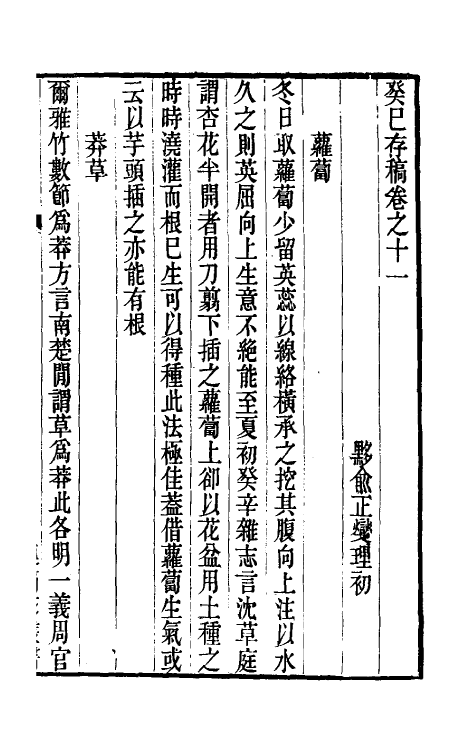 癸巳存稿卷之十一
黟俞正燮理初
蘿蔔
冬日取蘿蔔少留英蕊以線絡橫承之挖其腹向上注以水
久之則英屈向上生意不絶能至夏初癸辛雜志言沈草庭
謂杏花半開者用刀翦下插之蘿蔔上卻以花盆用土種之
時時澆灌而根巳生可以得種此法極佳葢借蘿蔔生氣或
云以芋頭插之亦能有根
莽草
爾雅竹數節爲莽方言南楚閒謂草爲莽此各明一義周官